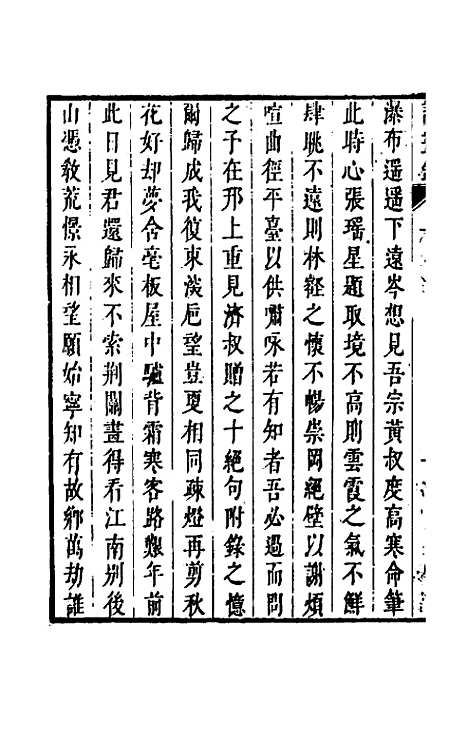 瀑布遥遥下遠岑想見吾宗黃叔度高寒命筆
此時心張瑶星題取境不高則雲霞之氣不鮮
肆眺不遠則林壑之懷不暢崇岡絕壁以謝煩
喧曲徑平臺以供嘯咏若有知者吾必過而問
之子在邗上重見濟叔贈之十絕句附錄之憶
爾歸成我復東蒼茫望豈更相同疎燈再剪秋
花好却夢含毫板屋中驢背霜寒客路艱年前
此日見君還歸來不索荆關畫得看江南别後
山憑教荒憬永相望願始寧知有故鄉萬劫誰